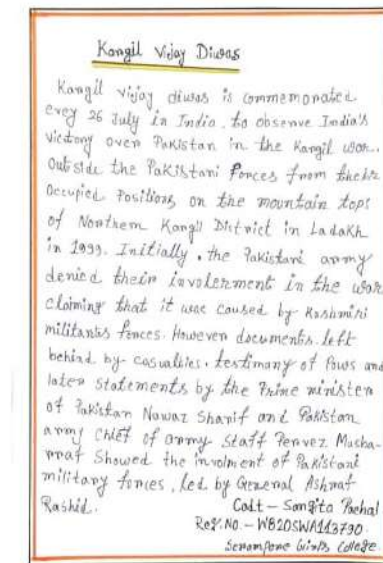 Kangil Vijay Diwas
Kangil vijay diwas is commemorated
evey 26 July in India, to observe India's
victory over Pakistan in the Kargil war.
Outside the Pakistani Forces from their
Occupied Positions on the mountain tops
of Northern Kangil District in Ladakh
in 1999. Initially, the Pakistani army
denied their involerment in the war
claiming that it was caused by Kashmiri
militants forces. However documents left
behind by casualties, testimany of Pows and
later statements by the Prime minister
of Pakistan Nawaz Sharif and Pakistan
army Chief of army Staff Pervez Musha-
rraf Showed the involment of Pakistani
military forces, led by General Ashraf
Rashid.
Cadt - Sangita Pachal
Reg. No. - WB20SWA113790
Serampore Girls College.